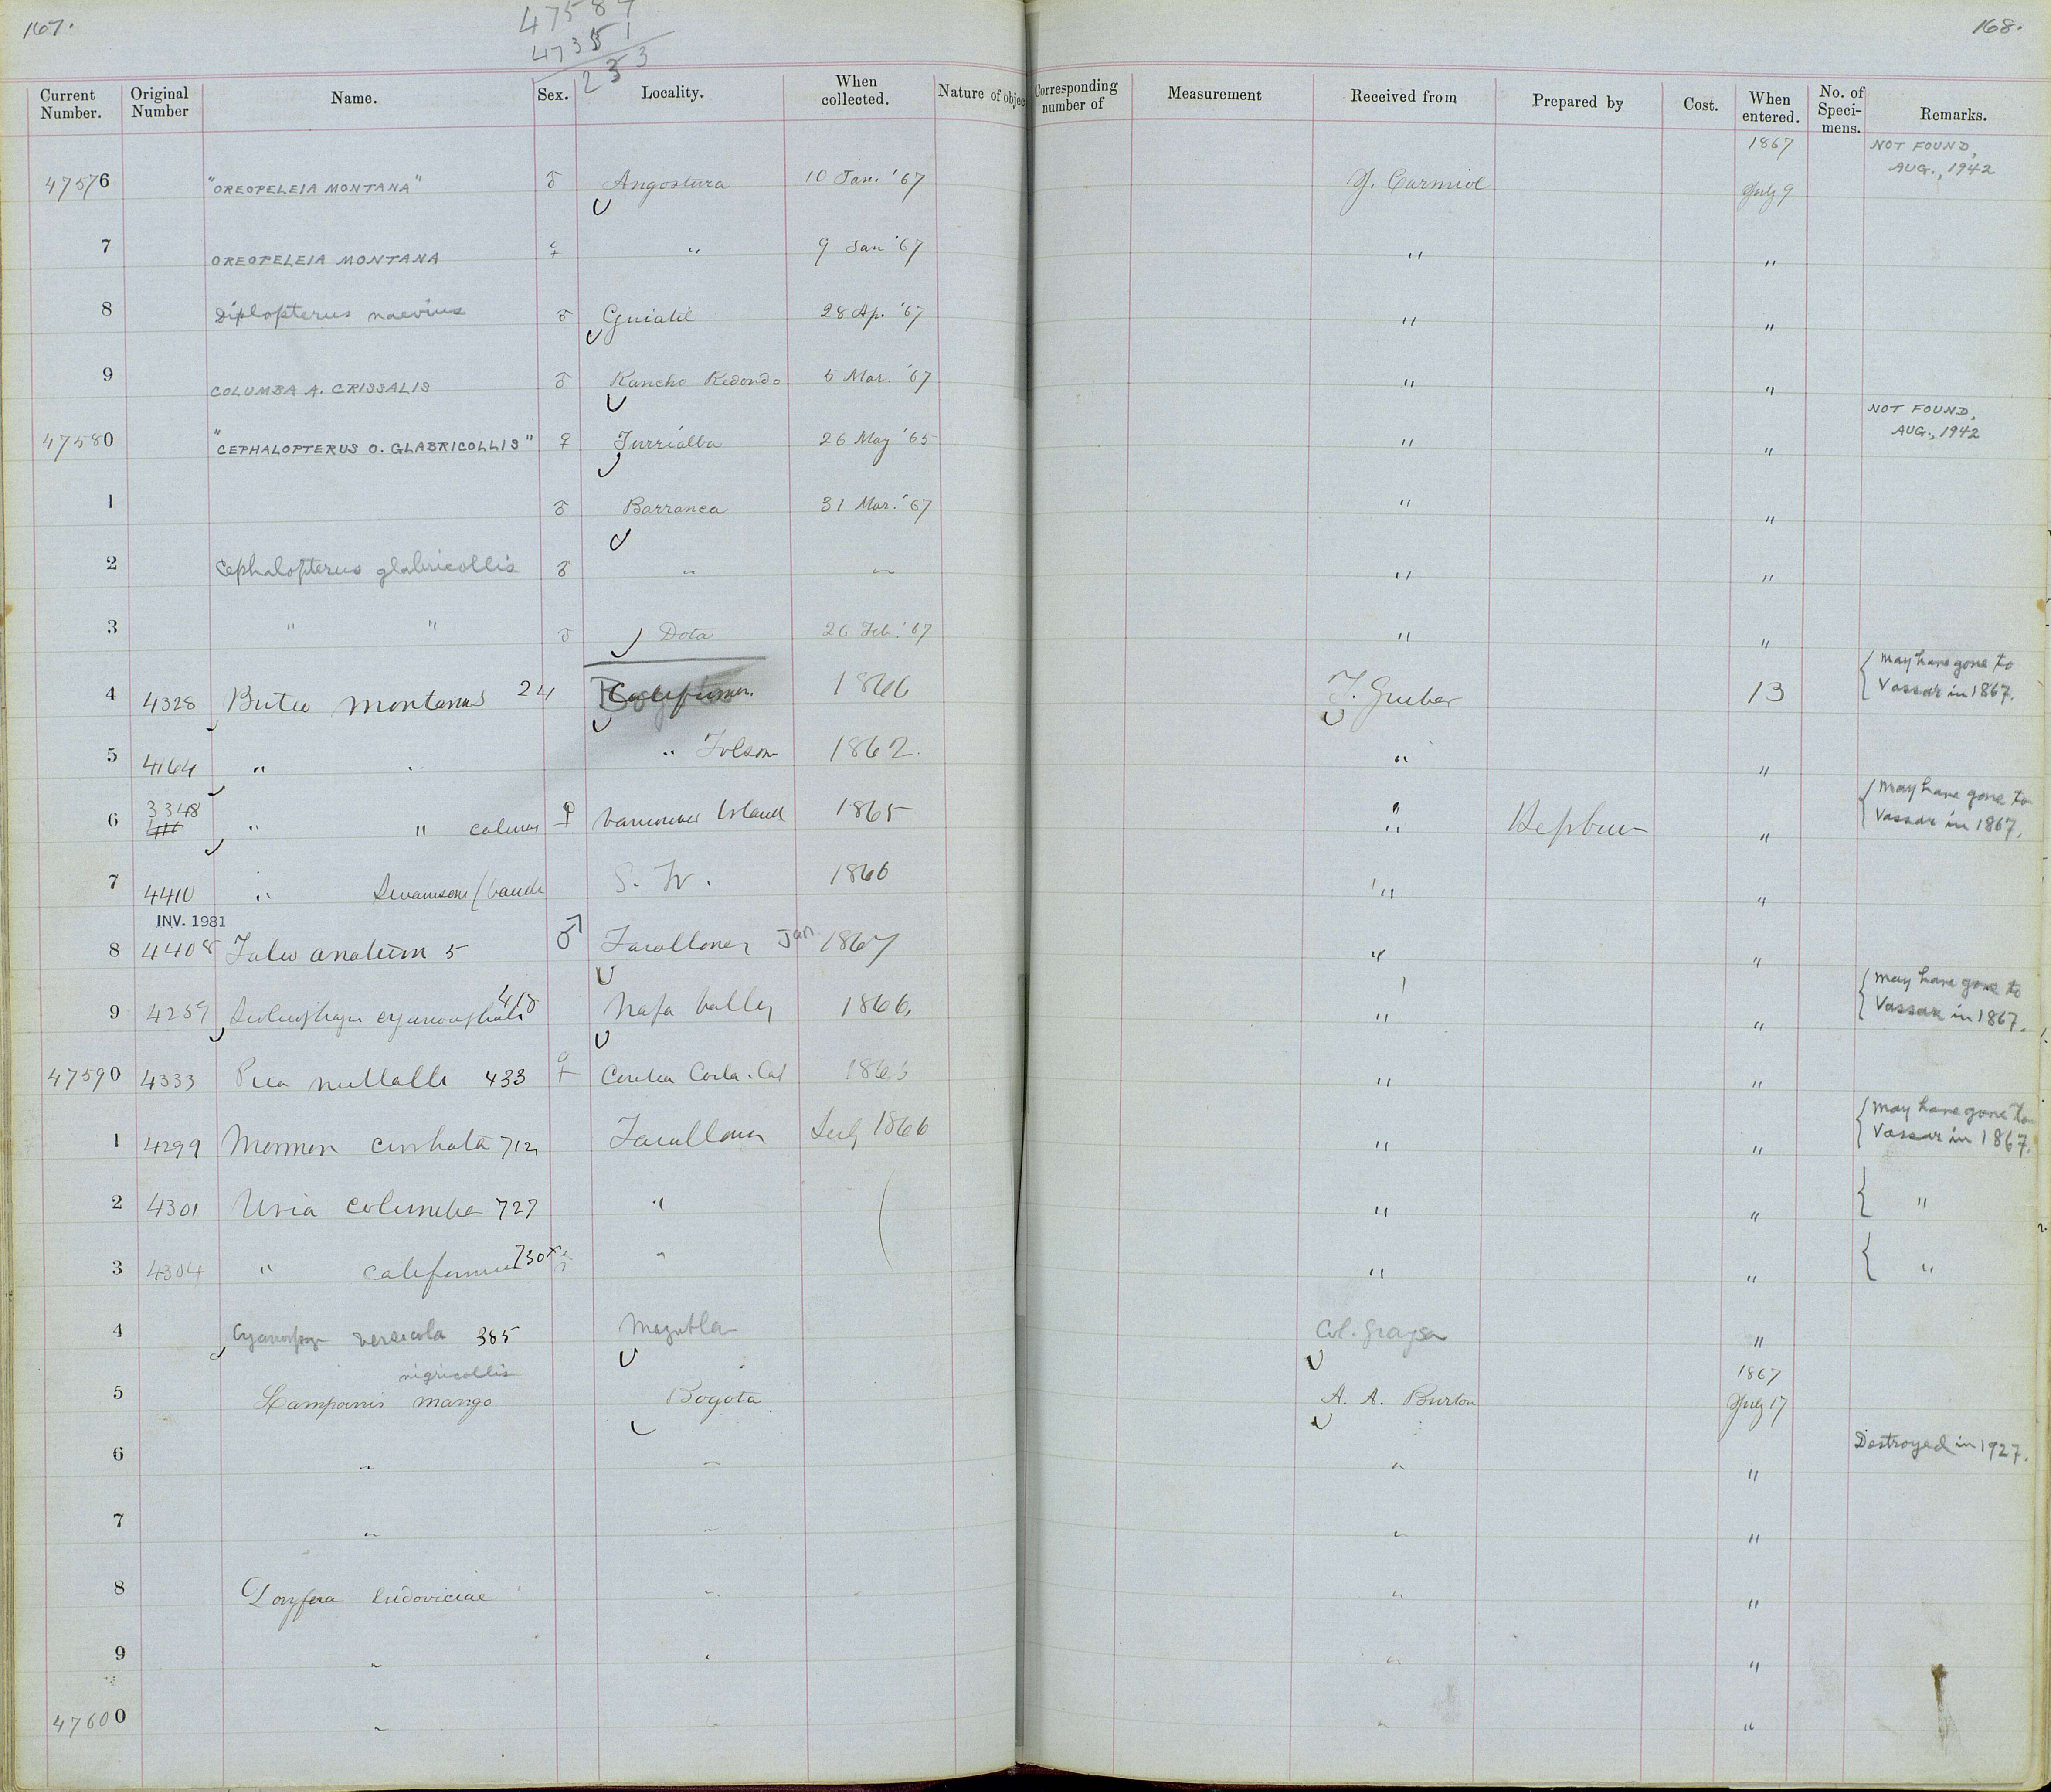 167.
47587
47351
233
168.
Current Number. Original Number Name. Sex. Locality. When collected. Nature of objec Corresponding number of Measurement Received from Prepared by Cost. When entered. No. of Speci-mens. Remarks.
47576 "OREOPELEIA MONTANA" ♂ Angostura 10 Jan. '67 J. Carmiol 1867 July 9 NOT FOUND, AUG., 1942
7 OREOPELEIA MONTANA ♀ " 9 Jan '67 " "
8 Diplopterus naevius ♂ Guiatil 28 Ap. '67 " "
9 COLUMBA A. CRISSALIS ♂ Rancho Redondo 5 Mar. '67 " "
47580 "CEPHALOPTERUS O. GLABRICOLLIS" ♀ Turrialba 26 May '65 " " NOT FOUND, AUG., 1942
1 ♂ Barranca 31 Mar. '67 " "
2 Cephalopterus glabricollis ♂ " " " "
3 " " ♂ Dota 26 Feb. '67 " "
4 4328 Buteo montanus 24 1866 F. Gruber 13 { May have gone to Vassar in 1867.
5 4164 " " " Folsom 1862. " "
6 3348 " " calurus ♀ Vancouver Island 1865 " Hepburn " { May have gone to Vassar in 1867.
7 4410 " Swainsoni 1866 " "
INV. 1981
8 4408 Falco anatum 5 ♂ Farallones Jan 1867 " "
9 4259 418 Napa Valley 1866. " " { May have gone to Vassar in 1867.
47590 4333 Pica nuttalli 433 ♀ Contra Costa. Cal 1863 " "
1 4299 Mormon cirrhata 712 Farallones July 1866 " " { May have gone to Vassar in 1867.
2 4301 Uria columba 727 " " " { "
3 4304 " californica 730 " " " { "
4 versicola 385 Mazatlan Col. Grayson "
nigricollis
5 Lampornis mango Bogota A. A. Burton 1867 July 17
6 " " " " Destroyed in 1927.
7 " " " "
8 Doryfera ludoviciae " " "
9 " " " "
47600 " " " "